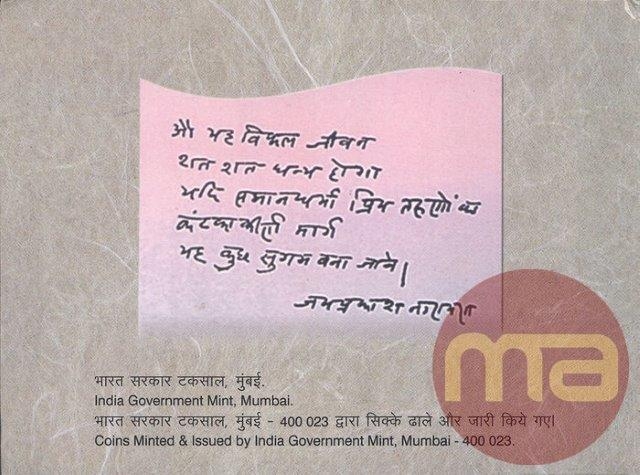 औ यह विफल जीवन
शत शत धन्य होगा
यदि समानधर्मा प्रिय तरुणों का
कंटकाकीर्ण मार्ग
यह कुछ सुगम बना जावे।
जयप्रकाश नारायण
भारत सरकार टकसाल, मुंबई.
India Government Mint, Mumbai.
भारत सरकार टकसाल, मुंबई - 400 023 द्वारा सिक्के ढाले और जारी किये गए।
Coins Minted & Issued by India Government Mint, Mumbai - 400 023.
ma